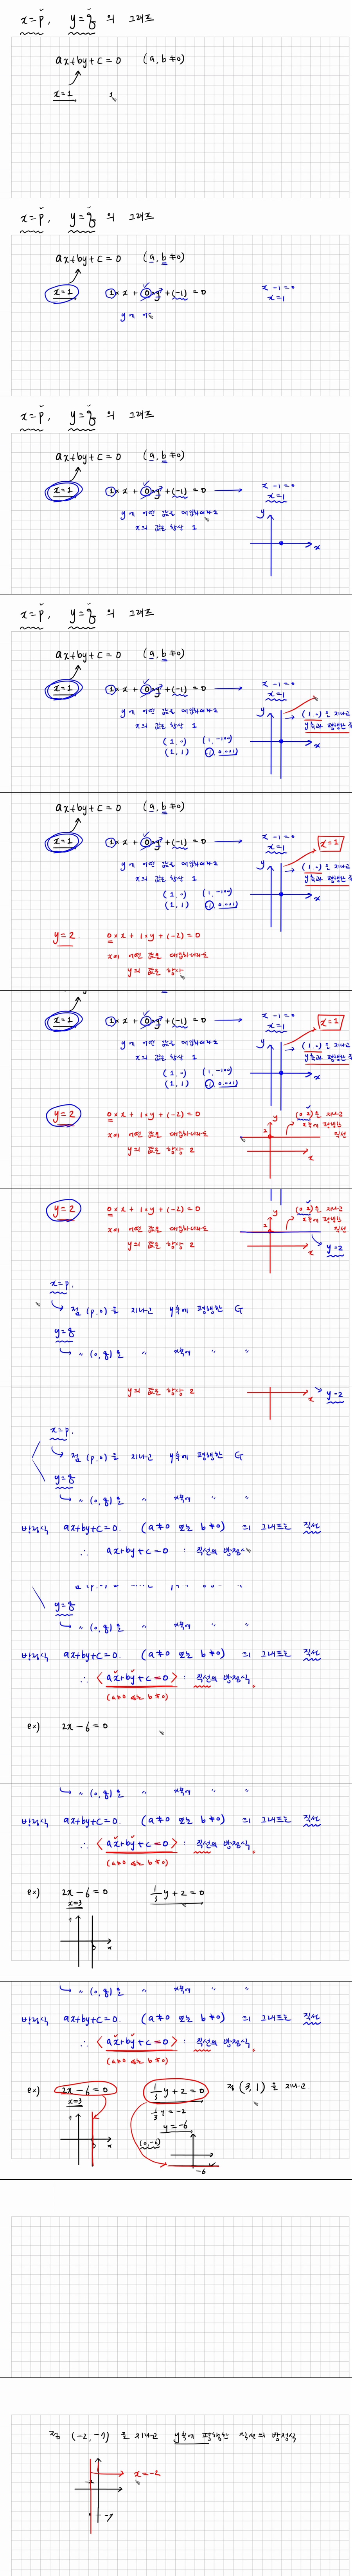 x=p, y=q 의 그래프
ax+by+c=0 (a, b≠0)
x=1
x=p, y=q 의 그래프
ax+by+c=0 (a, b≠0)
x=1 1×x+0×y+(-1)=0 x-1=0
x=1
y에 어떤
x=p, y=q 의 그래프
ax+by+c=0 (a, b≠0)
x=1 1×x+0×y+(-1)=0 x-1=0
x=1
y에 어떤 값을 대입하더라도 y
x의 값은 항상 1
x
x=p, y=q 의 그래프
ax+by+c=0 (a, b≠0)
x=1 1×x+0×y+(-1)=0 x-1=0
x=1
y에 어떤 값을 대입하더라도 y (1,0)을 지나고
x의 값은 항상 1 y축과 평행한
(1,0) (1,-100) x
(1,1) (1, 0.001)
ax+by+c=0 (a, b≠0)
x=1 1×x+0×y+(-1)=0 x-1=0 x=1
x=1
y에 어떤 값을 대입하더라도 y (1,0)을 지나고
x의 값은 항상 1 y축과 평행한
(1,0) (1,-100) x
(1,1) (1, 0.001)
y=2 0×x+1×y+(-2)=0
x에 어떤 값을 대입하더라도
y의 값은 항상
x=1 1×x+0×y+(-1)=0 x-1=0 x=1
x=1
y에 어떤 값을 대입하더라도 y (1,0)을 지나고
x의 값은 항상 1 y축과 평행한
(1,0) (1,-100) x
(1,1) (1, 0.001)
y=2 0×x+1×y+(-2)=0 y (0,2)를 지나고
x에 어떤 값을 대입하더라도 2 x축에 평행한
y의 값은 항상 2 x 직선
y=2 0×x+1×y+(-2)=0 y (0,2)를 지나고
x에 어떤 값을 대입하더라도 2 x축에 평행한
y의 값은 항상 2 x 직선
y=2
x=p,
점 (p,0)을 지나고 y축에 평행한 G
y=q
〃 (0,q)을 〃 x축에 〃 〃
y의 값은 항상 2 x y=2
x=p,
점 (p,0)을 지나고 y축에 평행한 G
y=q
〃 (0,q)을 〃 x축에 〃 〃
방정식 ax+by+c=0. (a≠0 또는 b≠0) 의 그래프는 직선
∴ ax+by+c=0 : 직선의 방정식
y=q
〃 (0,q)을 〃 x축에 〃 〃
방정식 ax+by+c=0. (a≠0 또는 b≠0) 의 그래프는 직선
∴ ⟨ax+by+c=0⟩ : 직선의 방정식.
(a≠0 또는 b≠0)
ex) 2x-6=0
〃 (0,q)을 〃 x축에 〃 〃
방정식 ax+by+c=0. (a≠0 또는 b≠0) 의 그래프는 직선
∴ ⟨ax+by+c=0⟩ : 직선의 방정식.
(a≠0 또는 b≠0)
ex) 2x-6=0 1/3y+2=0
x=3
3 x
〃 (0,q)을 〃 x축에 〃 〃
방정식 ax+by+c=0. (a≠0 또는 b≠0) 의 그래프는 직선
∴ ⟨ax+by+c=0⟩ : 직선의 방정식.
(a≠0 또는 b≠0)
ex) 2x-6=0 1/3y+2=0 점 (3,1)을 지나고
x=3 1/3y=-2
y=-6
3 x (0,-6)
-6
점 (-2,-7)을 지나고 y축에 평행한 직선의 방정식
x=-2
-2
-7